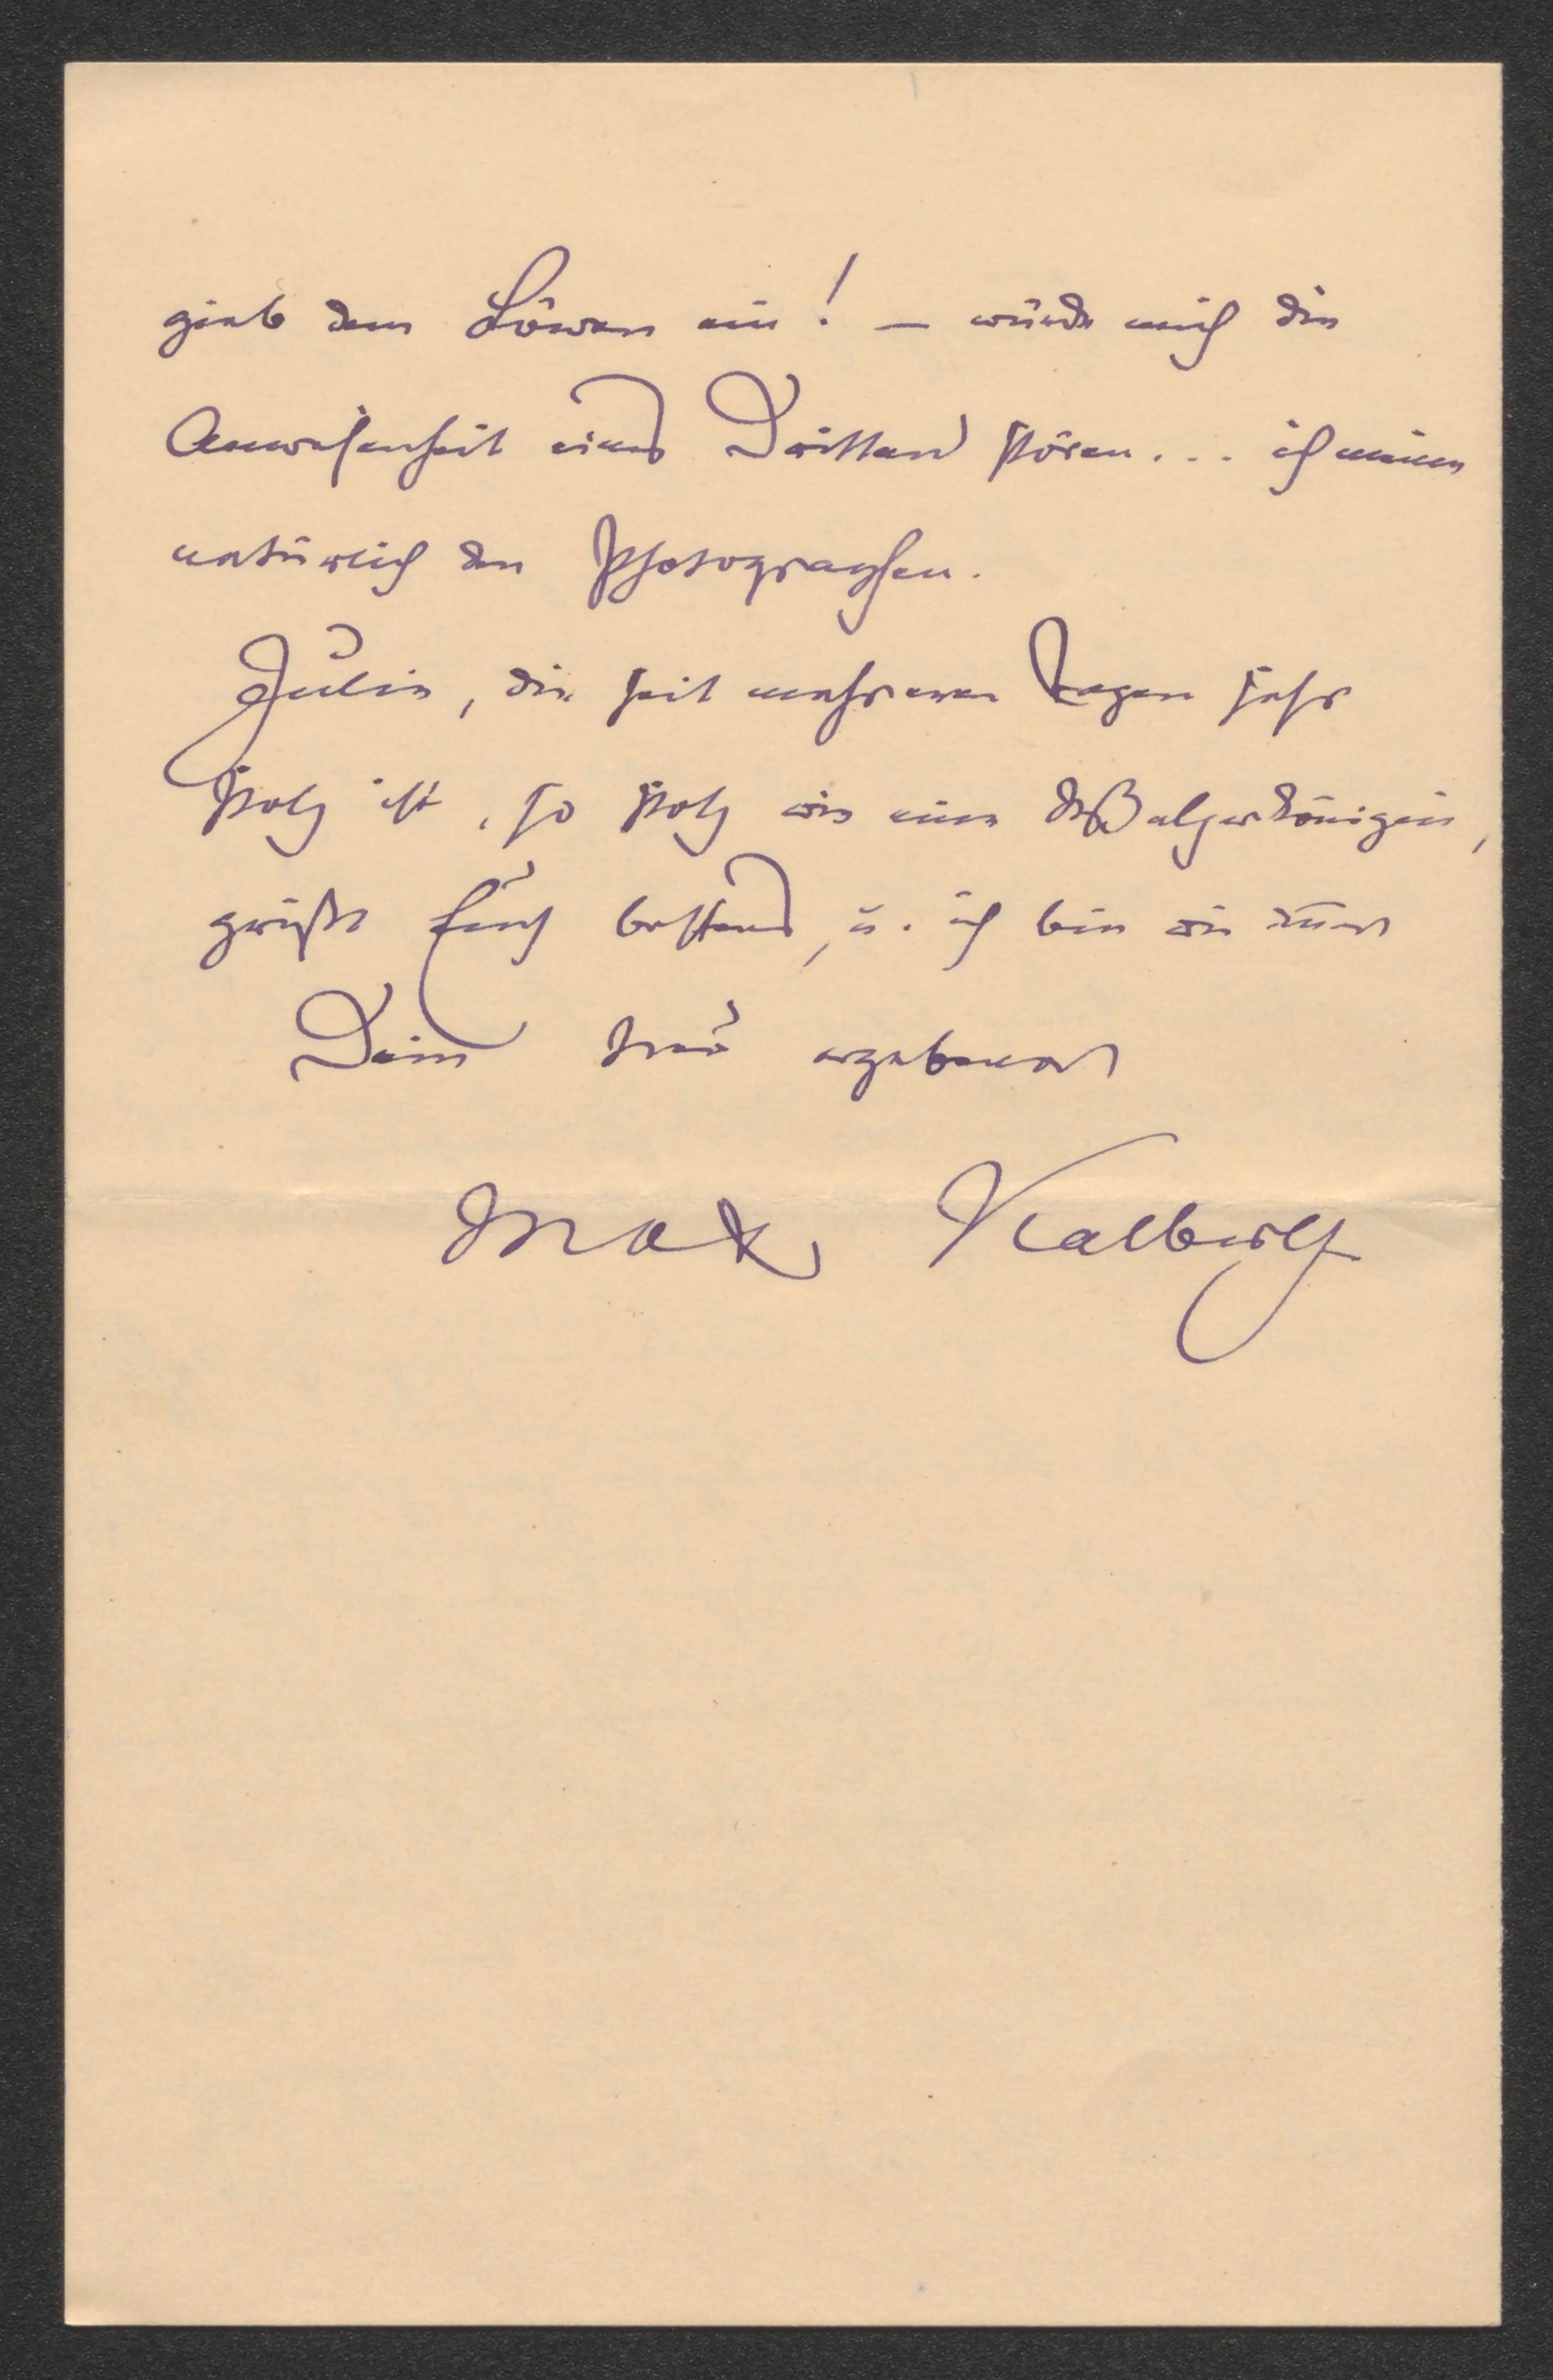 gieb dem Löwen ein! – würde mich die
Anwesenheit eines Dritten stören... ich meine
natürlich den Photographen.
Julie, die seit mehreren Tagen sehr
stolz ist, so stolz wie eine
grüßt Euch bestens, u. ich bin wie immer
Dein treu ergebener
Max Kalbeck